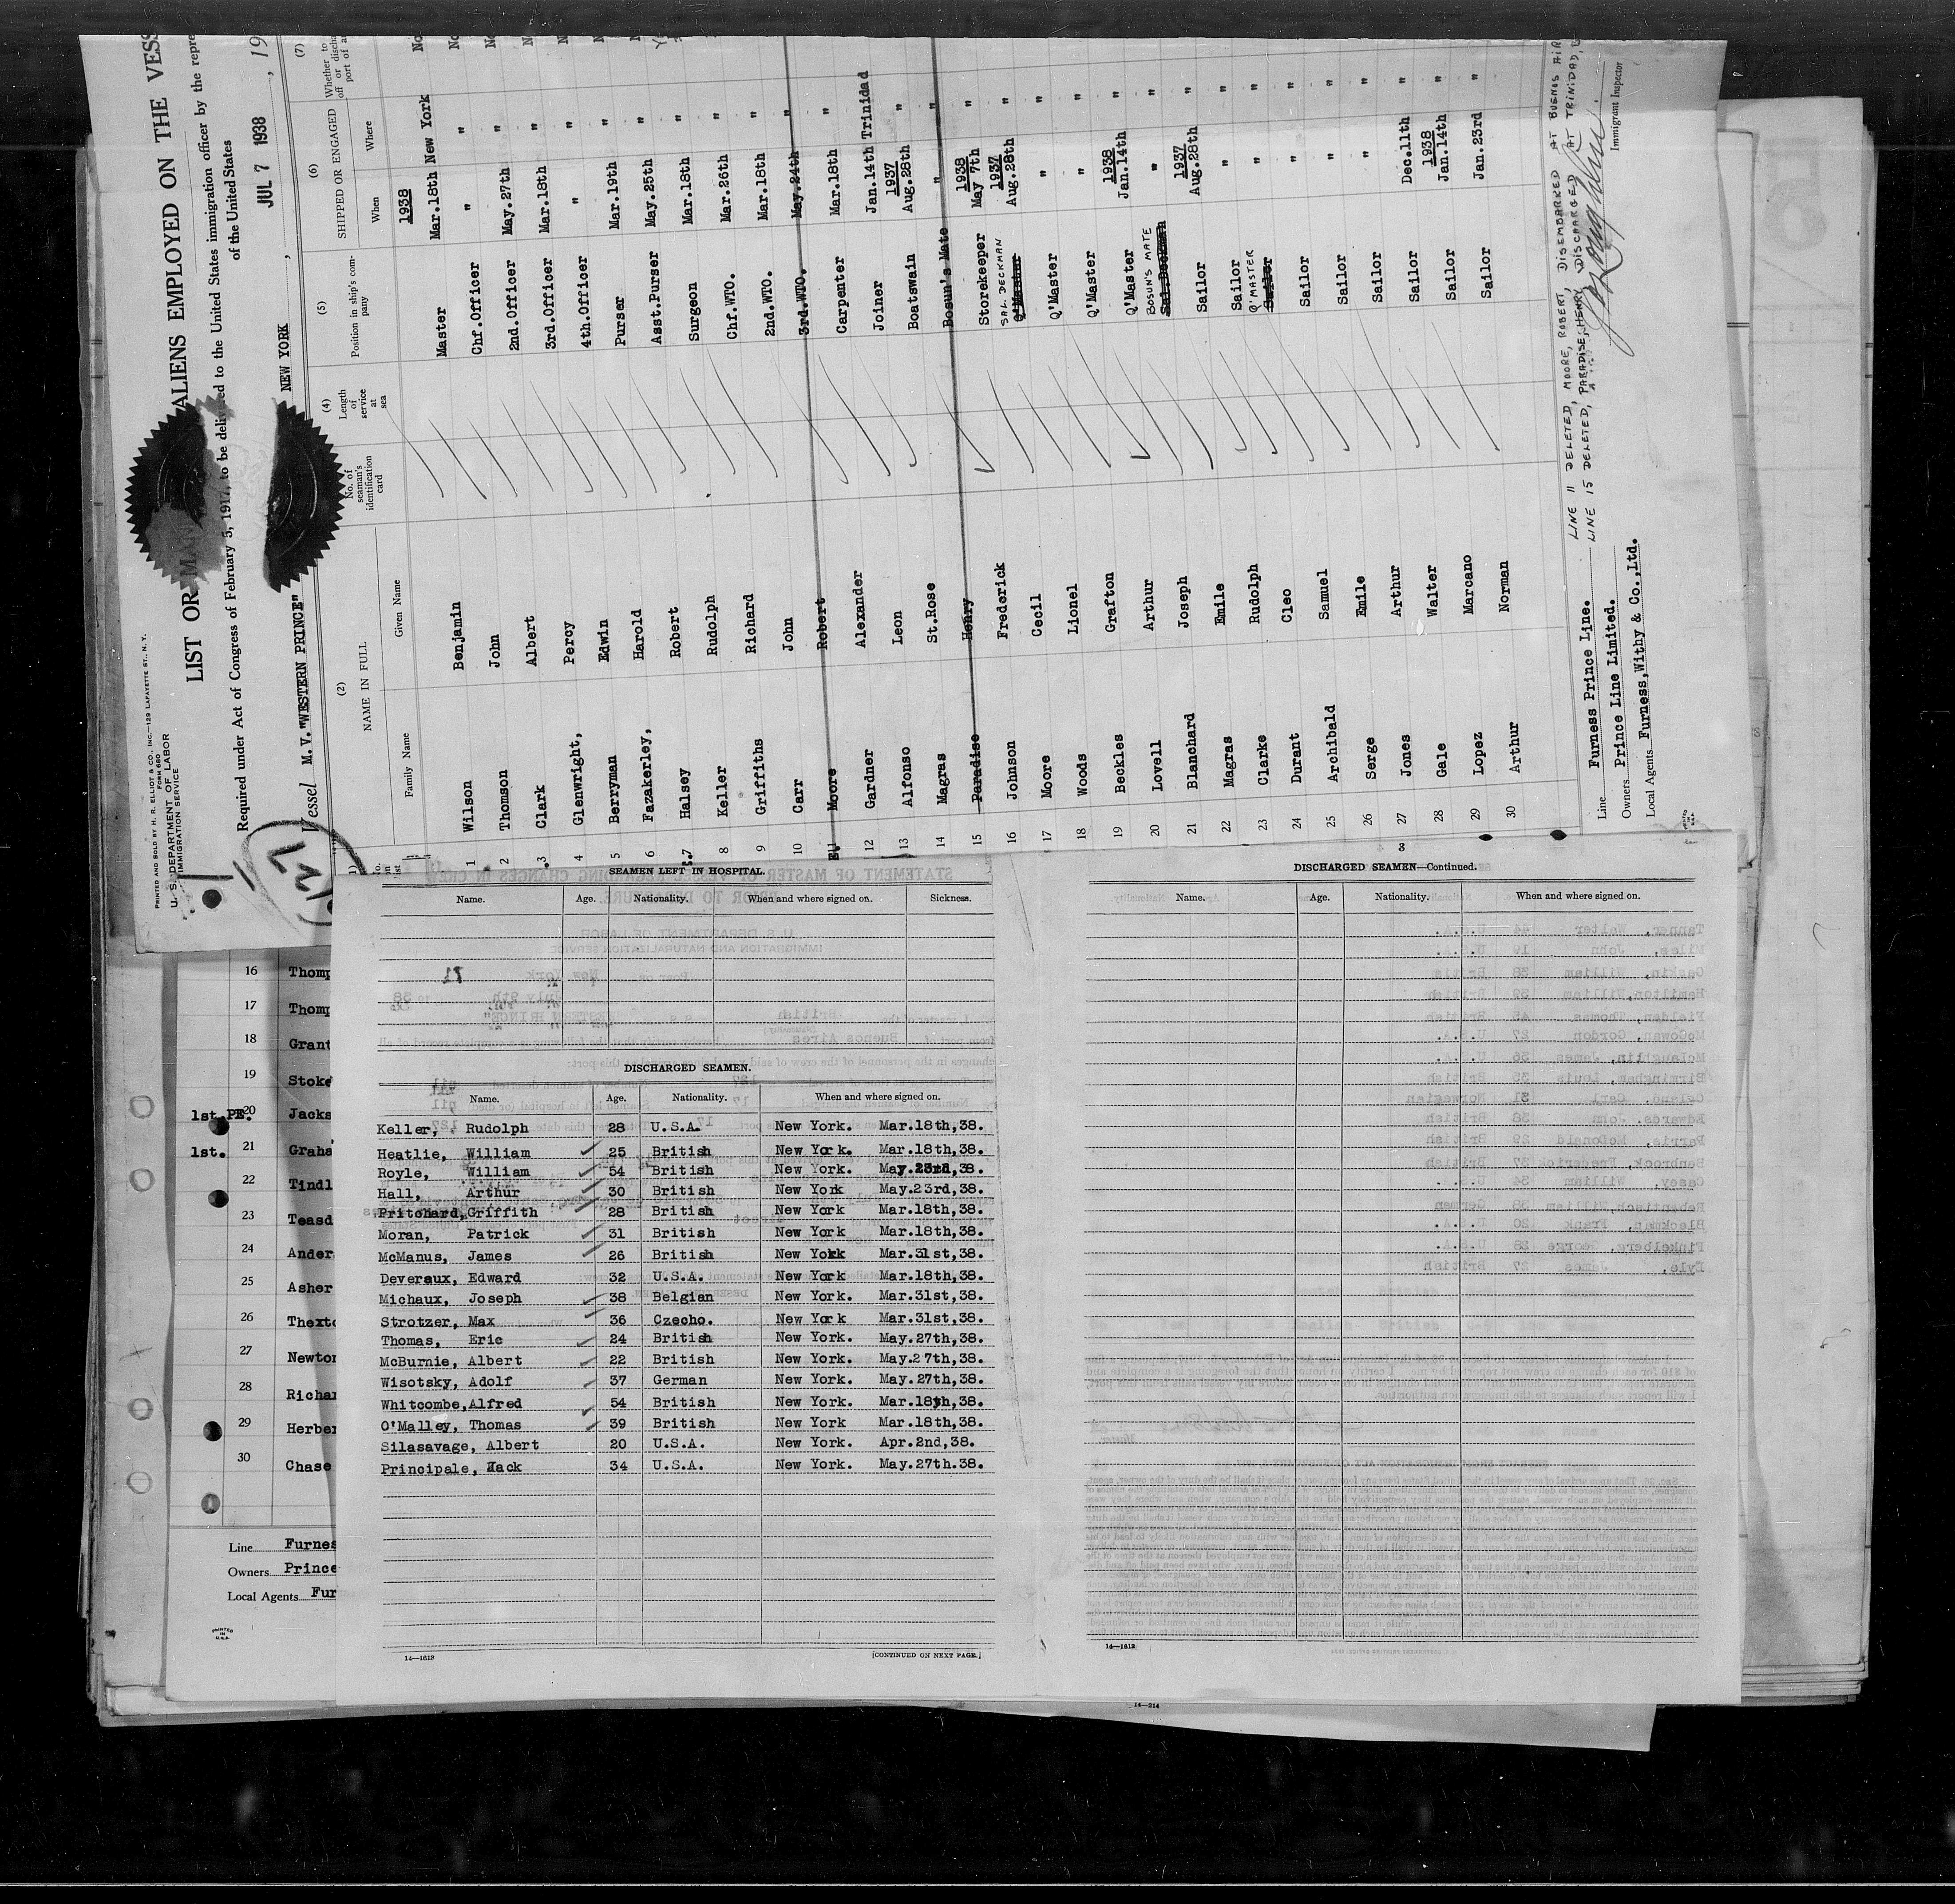 PRINTED AND SOLD BY H. R. ELLIOT & CO., INC.—129 LAFAYETTE ST., N. Y.
FORM 680
U. S. DEPARTMENT OF LABOR
IMMIGRATION SERVICE
LIST OR ALIENS EMPLOYED ON THE VESS
Required under Act of Congress of February 5, 1917, to be delivered to the United States immigration officer by the repre
of the United States
Vessel M.V. "WESTERN PRINCE" NEW YORK , JUL 7 1938 , 19
(2) (4) (5) (6) (7)
NAME IN FULL No. of seaman's identification card Length of service at sea Position in ship's company SHIPPED OR ENGAGED
Family Name Given Name When Where
1938
1 Wilson Benjamin Master Mar.18th New York
2 Thomson John Chf.Officer " "
3 Clark Albert 2nd.Officer May.27th "
4 Glenwright, Percy 3rd.Officer Mar.18th "
5 Berryman Edwin 4th.Officer " "
6 Fazakerley, Harold Purser Mar.19th "
7 Halsey Robert Asst.Purser May.25th "
8 Keller Rudolph Surgeon Mar.18th "
9 Griffiths Richard Chf.WTO. Mar.26th "
10 Carr John 2nd.WTO. Mar.18th "
Moore Robert 3rd.WTO. May.24th "
12 Gardner Alexander Carpenter Mar.18th "
13 Alfonso Leon Joiner Jan.14th Trinidad
14 Magras St.Rose Boatswain 1937 Aug.28th "
15 Paradise Henry Bosun's Mate " "
16 Johnson Frederick Storekeeper 1938 May 7th "
17 Moore Cecil SAL. DECKMAN Q'Master 1937 Aug.28th "
18 Woods Lionel Q'Master " "
19 Beckles Grafton Q'Master " "
20 Lovell Arthur Q'Master 1938 Jan.14th "
21 Blanchard Joseph BOSUN'S MATE " "
22 Magras Emile Sailor 1937 Aug.28th "
23 Clarke Rudolph Sailor " "
24 Durant Cleo Q'MASTER Sailor " "
25 Archibald Samuel Sailor " "
26 Serge Emile Sailor " "
27 Jones Arthur Sailor " "
28 Gale Walter Sailor Dec.11th "
29 Lopez Marcano Sailor 1938 Jan.14th "
30 Arthur Norman Sailor Jan.23rd "
LINE 11 DELETED, MOORE, ROBERT, DISEMBARKED AT BUENOS AIR
LINE 15 DELETED, PARADISE, HENRY DISCHARGED AT TRINIDAD,
Line Furness Prince Line.
Owners Prince Line Limited.
Local Agents Furness, Withy & Co.,Ltd.
Immigrant Inspector
16 Thomp
17 Thomp
18 Grant
19 Stoke
1st.PE. 20 Jacks
1st. 21 Graha
22 Tindl
23 Teasd
24 Ander
25 Asher
26 Thexto
27 Newton
28 Richar
29 Herber
30 Chase
Line Furnes
Owners Prince
Local Agents Fur
PRINTED IN U.S.A.
SEAMEN LEFT IN HOSPITAL.
Name. Age. Nationality. When and where signed on. Sickness.
DISCHARGED SEAMEN.
Name. Age. Nationality. When and where signed on.
Keller, Rudolph 28 U.S.A. New York. Mar.18th,38.
Heatlie, William 25 British New York. Mar.18th,38.
Royle, William 54 British New York. May.23rd,38.
Hall, Arthur 30 British New York May.23rd,38.
Pritchard, Griffith 28 British New York Mar.18th,38.
Moran, Patrick 31 British New York Mar.18th,38.
McManus, James 26 British New York Mar.31st,38.
Deveraux, Edward 32 U.S.A. New York Mar.18th,38.
Michaux, Joseph 38 Belgian New York. Mar.31st,38.
Strotzer, Max 36 Czecho. New York Mar.31st,38.
Thomas, Eric 24 British New York. May.27th,38.
McBurnie, Albert 22 British New York. May.27th,38.
Wisotsky, Adolf 37 German New York. May.27th,38.
Whitcombe, Alfred 54 British New York. Mar.18th,38.
O'Malley, Thomas 39 British New York Mar.18th,38.
Silasavage, Albert 20 U.S.A. New York. Apr.2nd,38.
Principale, Zack 34 U.S.A. New York. May.27th.38.
14—1613 [CONTINUED ON NEXT PAGE.]
3
DISCHARGED SEAMEN—Continued.
Name. Age. Nationality. When and where signed on.
14—1613
14—214